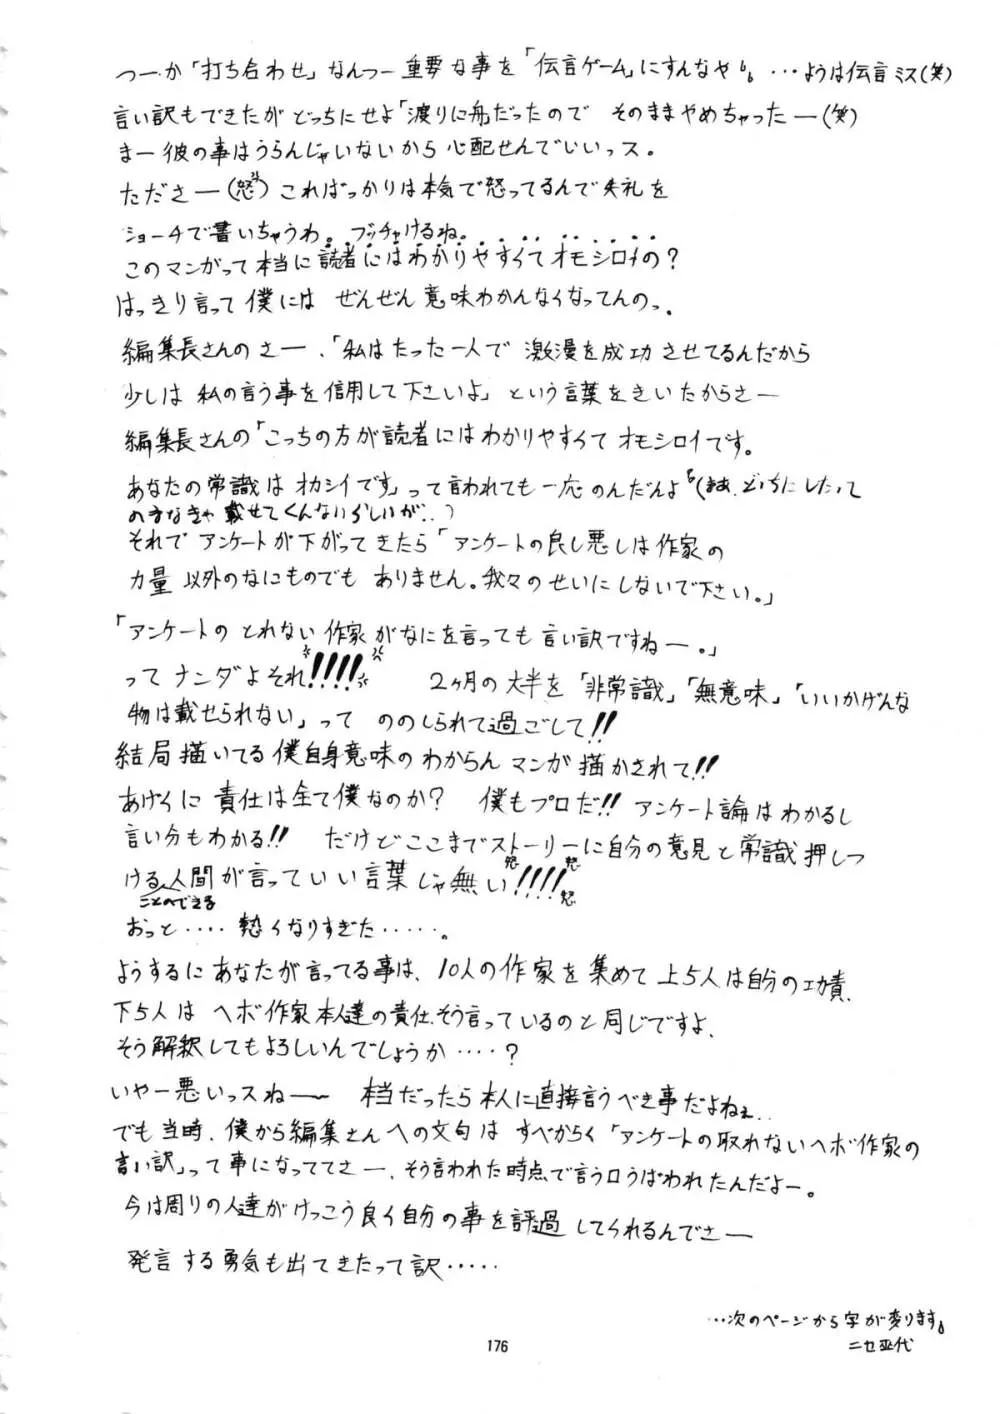 つーか「打ち合わせ」なんつー重要な事を「伝言ゲーム」にすんなや。…ようは伝言ミス(笑)
言い訳もできたがどっちにせよ「渡りに舟」だったので そのままやめちゃったー(笑)
まー彼の事はうらんじゃいないから心配せんでいいっス。
たださー(怒)こればっかりは本気で怒ってるんで失礼を
ショーチで書いちゃうわ。ブッチャけるね。
このマンガって本当に読者にはわかりやすくてオモシロイの?
はっきり言って僕にはぜんぜん意味わかんなくなってんのっ.
編集長さんのさー、「私はたった一人で激漫を成功させてるんだから
少しは私の言う事を信用して下さいよ」という言葉をきいたからさー
編集長さんの「こっちの方が読者にはわかりやすくてオモシロイです。
あなたの常識はオカシイです」って言われても一応のんだんよ(まぁ、どっちにしたって
のまなきゃ載せてくんないらしいが‥)
それでアンケートが下がってきたら「アンケートの良し悪しは作家の
力量以外のなにものでもありません。我々のせいにしないで下さい。」
「アンケートのとれない作家がなにを言っても言い訳ですねー。」
ってナンダよそれ!!!! 2ヶ月の大半を「非常識」「無意味」「いいかげんな
物は載せられない」って ののしられて過ごして!!
結局描いてる僕自身意味のわからんマンガ描かされて!!
あげくに責任は全て僕なのか? 僕もプロだ!! アンケート論はわかるし
言い分もわかる!! だけどここまでストーリーに自分の意見と常識押しつ
ける人間が言っていい言葉じゃ無い!!!!怒怒怒
ことのできる
おっと‥‥熱くなりすぎた‥‥‥。
ようするにあなたが言ってる事は、10人の作家を集めて上5人は自分の功責、
下5人はヘボ作家本人達の責任、そう言っているのと同じですよ、
そう解釈してもよろしいんでしょうか‥‥?
いやー悪いっスねー〜 本当だったら本人に直接言うべき事だよねぇ‥
でも当時、僕から編集さんへの文句はすべからく「アンケートの取れないヘボ作家の
言い訳」って事になっててさー、そう言われた時点で言う口うばわれたんだよー。
今は周りの人達がけっこう良く自分の事を評過してくれるんでさー
発言する勇気も出てきたって訳‥‥‥
…次のページから字が変ります。
ニセ亜代
176